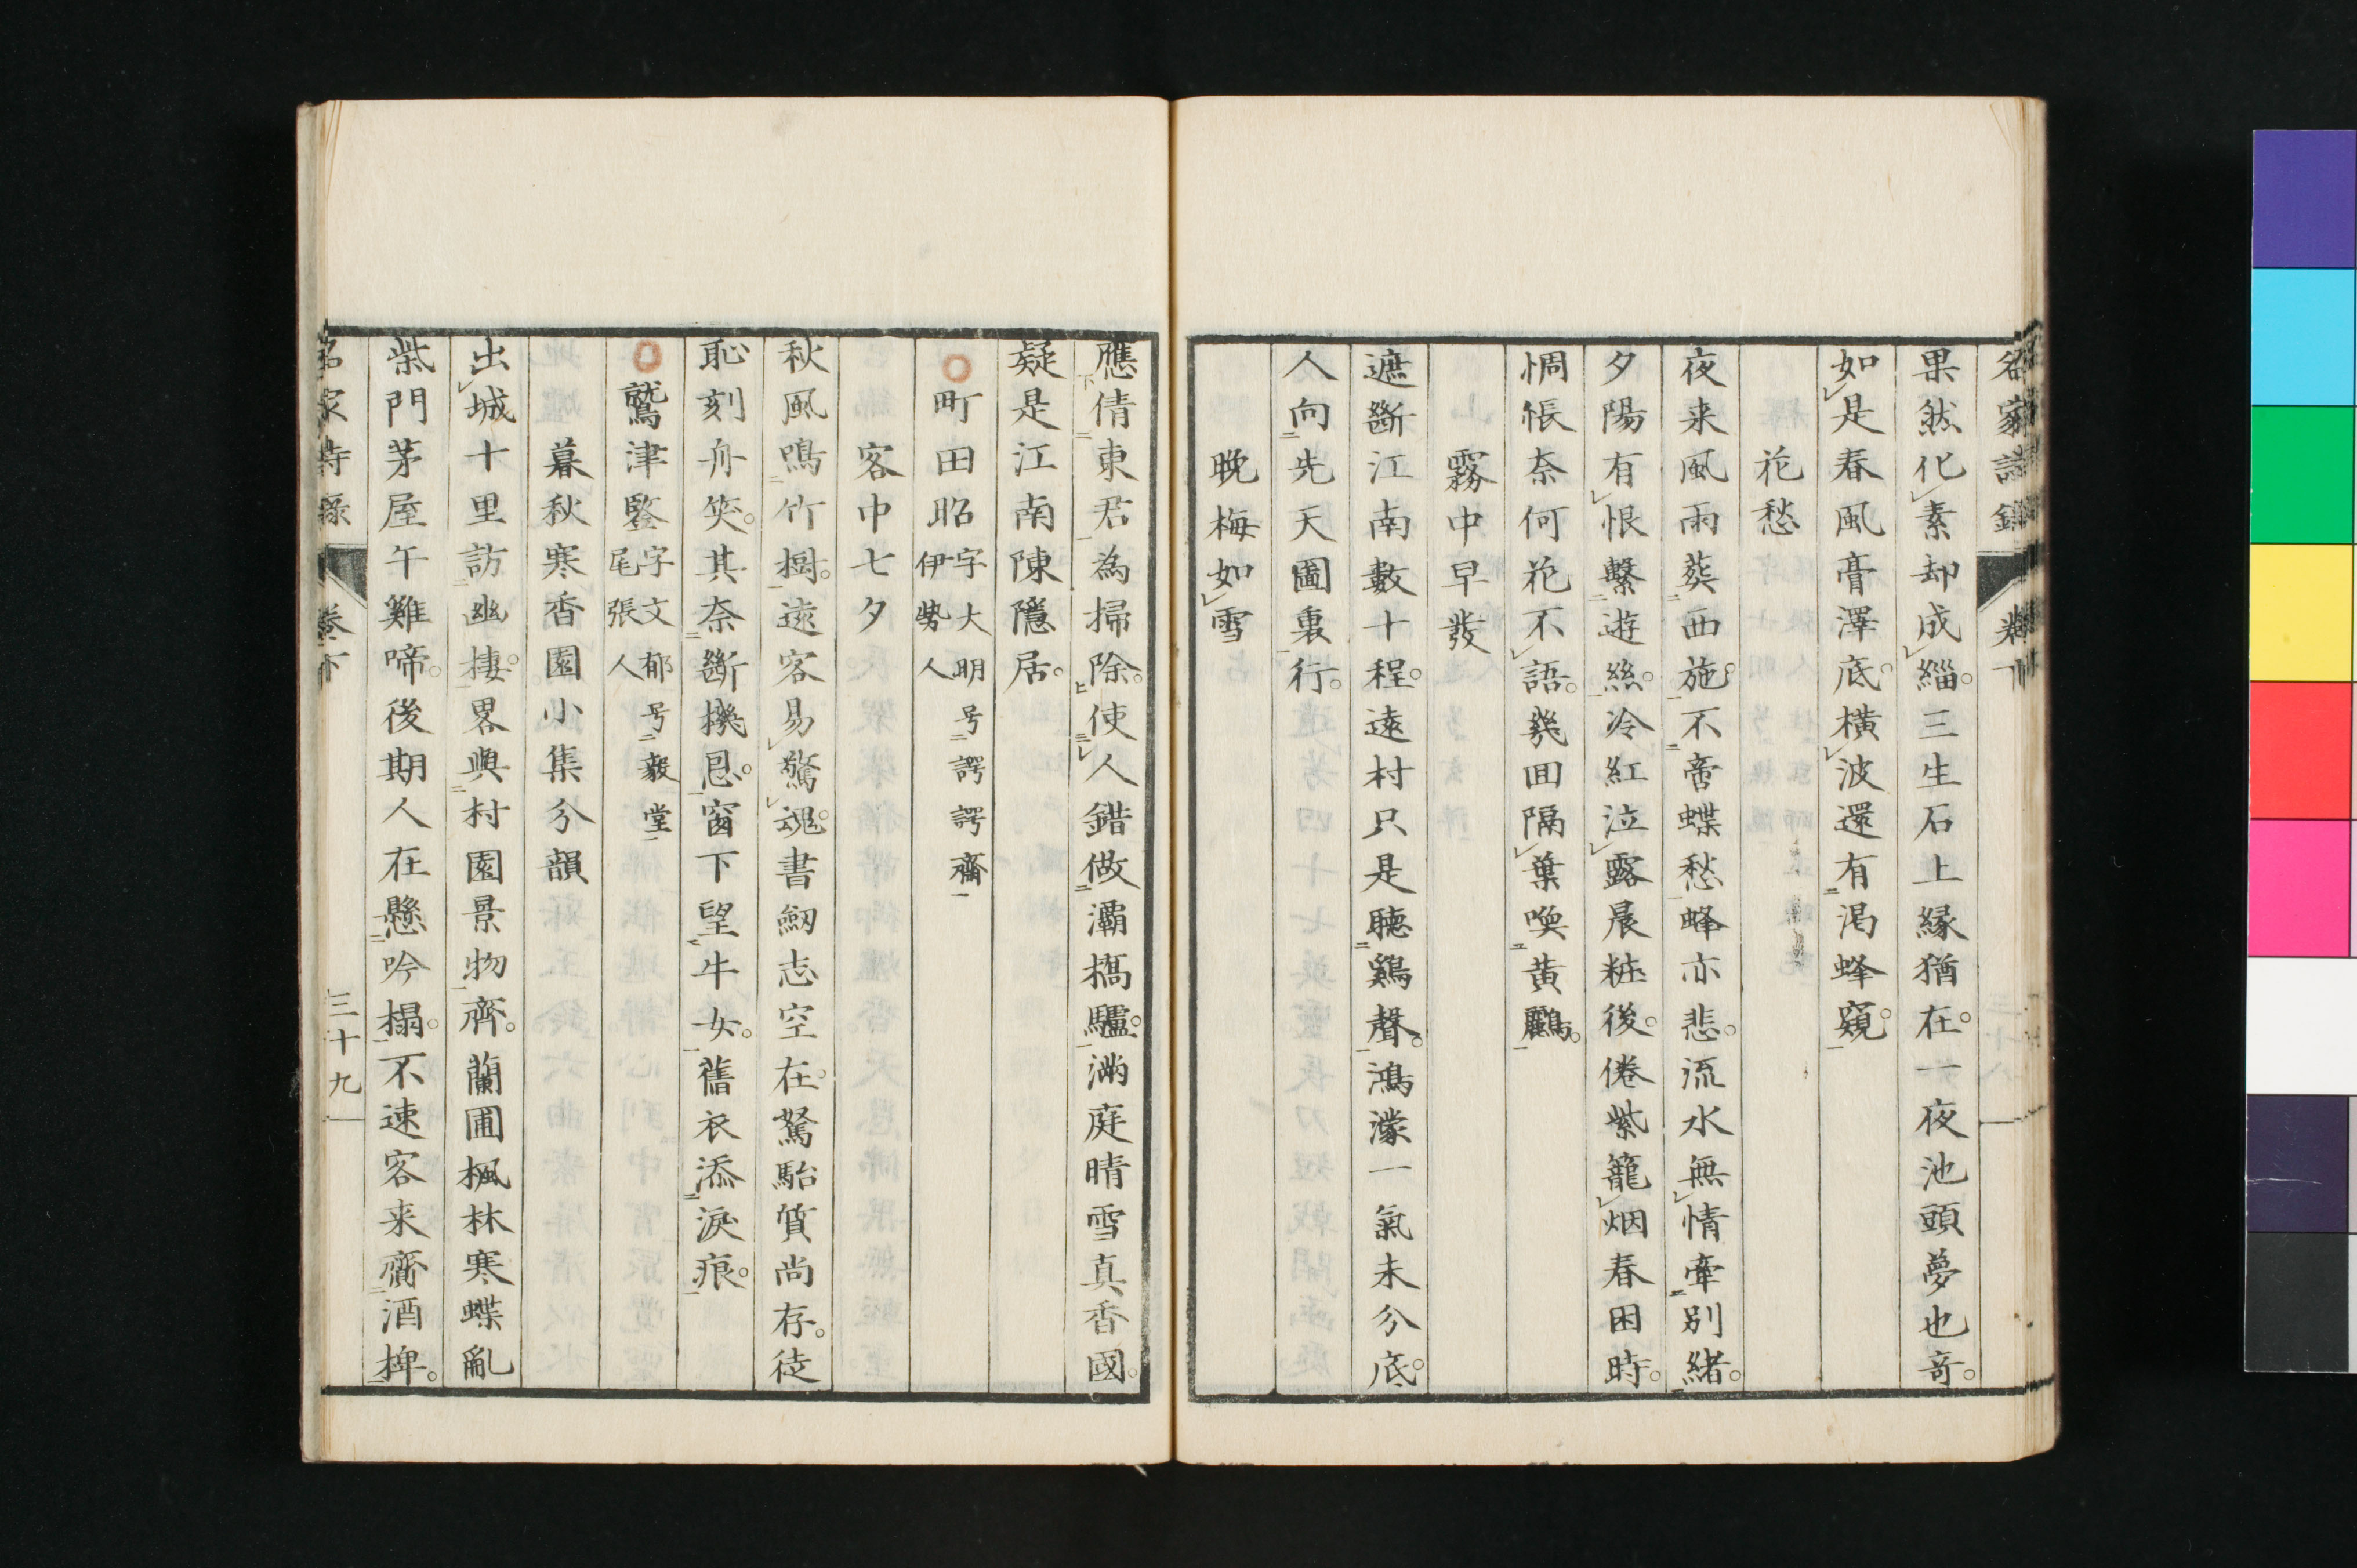 名家詩録 卷下
果然化素却成緇。三生石上縁猶在。一夜池頭夢也奇。
如是春風膏澤底。横波還有渇蜂窺。
花愁
夜来風雨葬西施。不啻蝶愁蜂亦悲。流水無情牽別緒。
夕陽有恨繫遊絲。冷紅泣露晨粧後。倦紫籠烟春困時。
惆悵奈何花不語。幾回隔葉喚黄鸝。
霧中早發
遮斷江南數十程。遠村只是聴鷄聲。鴻濛一氣未分底。
人向先天圖裏行。
晩梅如雪
應倩東君為掃除。使人錯做灞橋驢。満庭晴雪真香國。
疑是江南陳隱居。
町田昭 字大明号諤諤齋 伊勢人
客中七夕
秋風鳴竹樹。遠客易驚魂。書劔志空在。駑駘質尚存。徒
恥刻舟笑。其奈斷機恩。窗下望牛女。舊衣添淚痕。
鷲津監 字文郁号毅堂 尾張人
暮秋寒香園小集分韻
出城十里訪幽棲。畧與村園景物齊。蘭圃楓林寒蝶亂
柴門茅屋午雞啼。後期人在懸吟榻。不速客来齎酒椑。
名家詩録 卷下 三十九